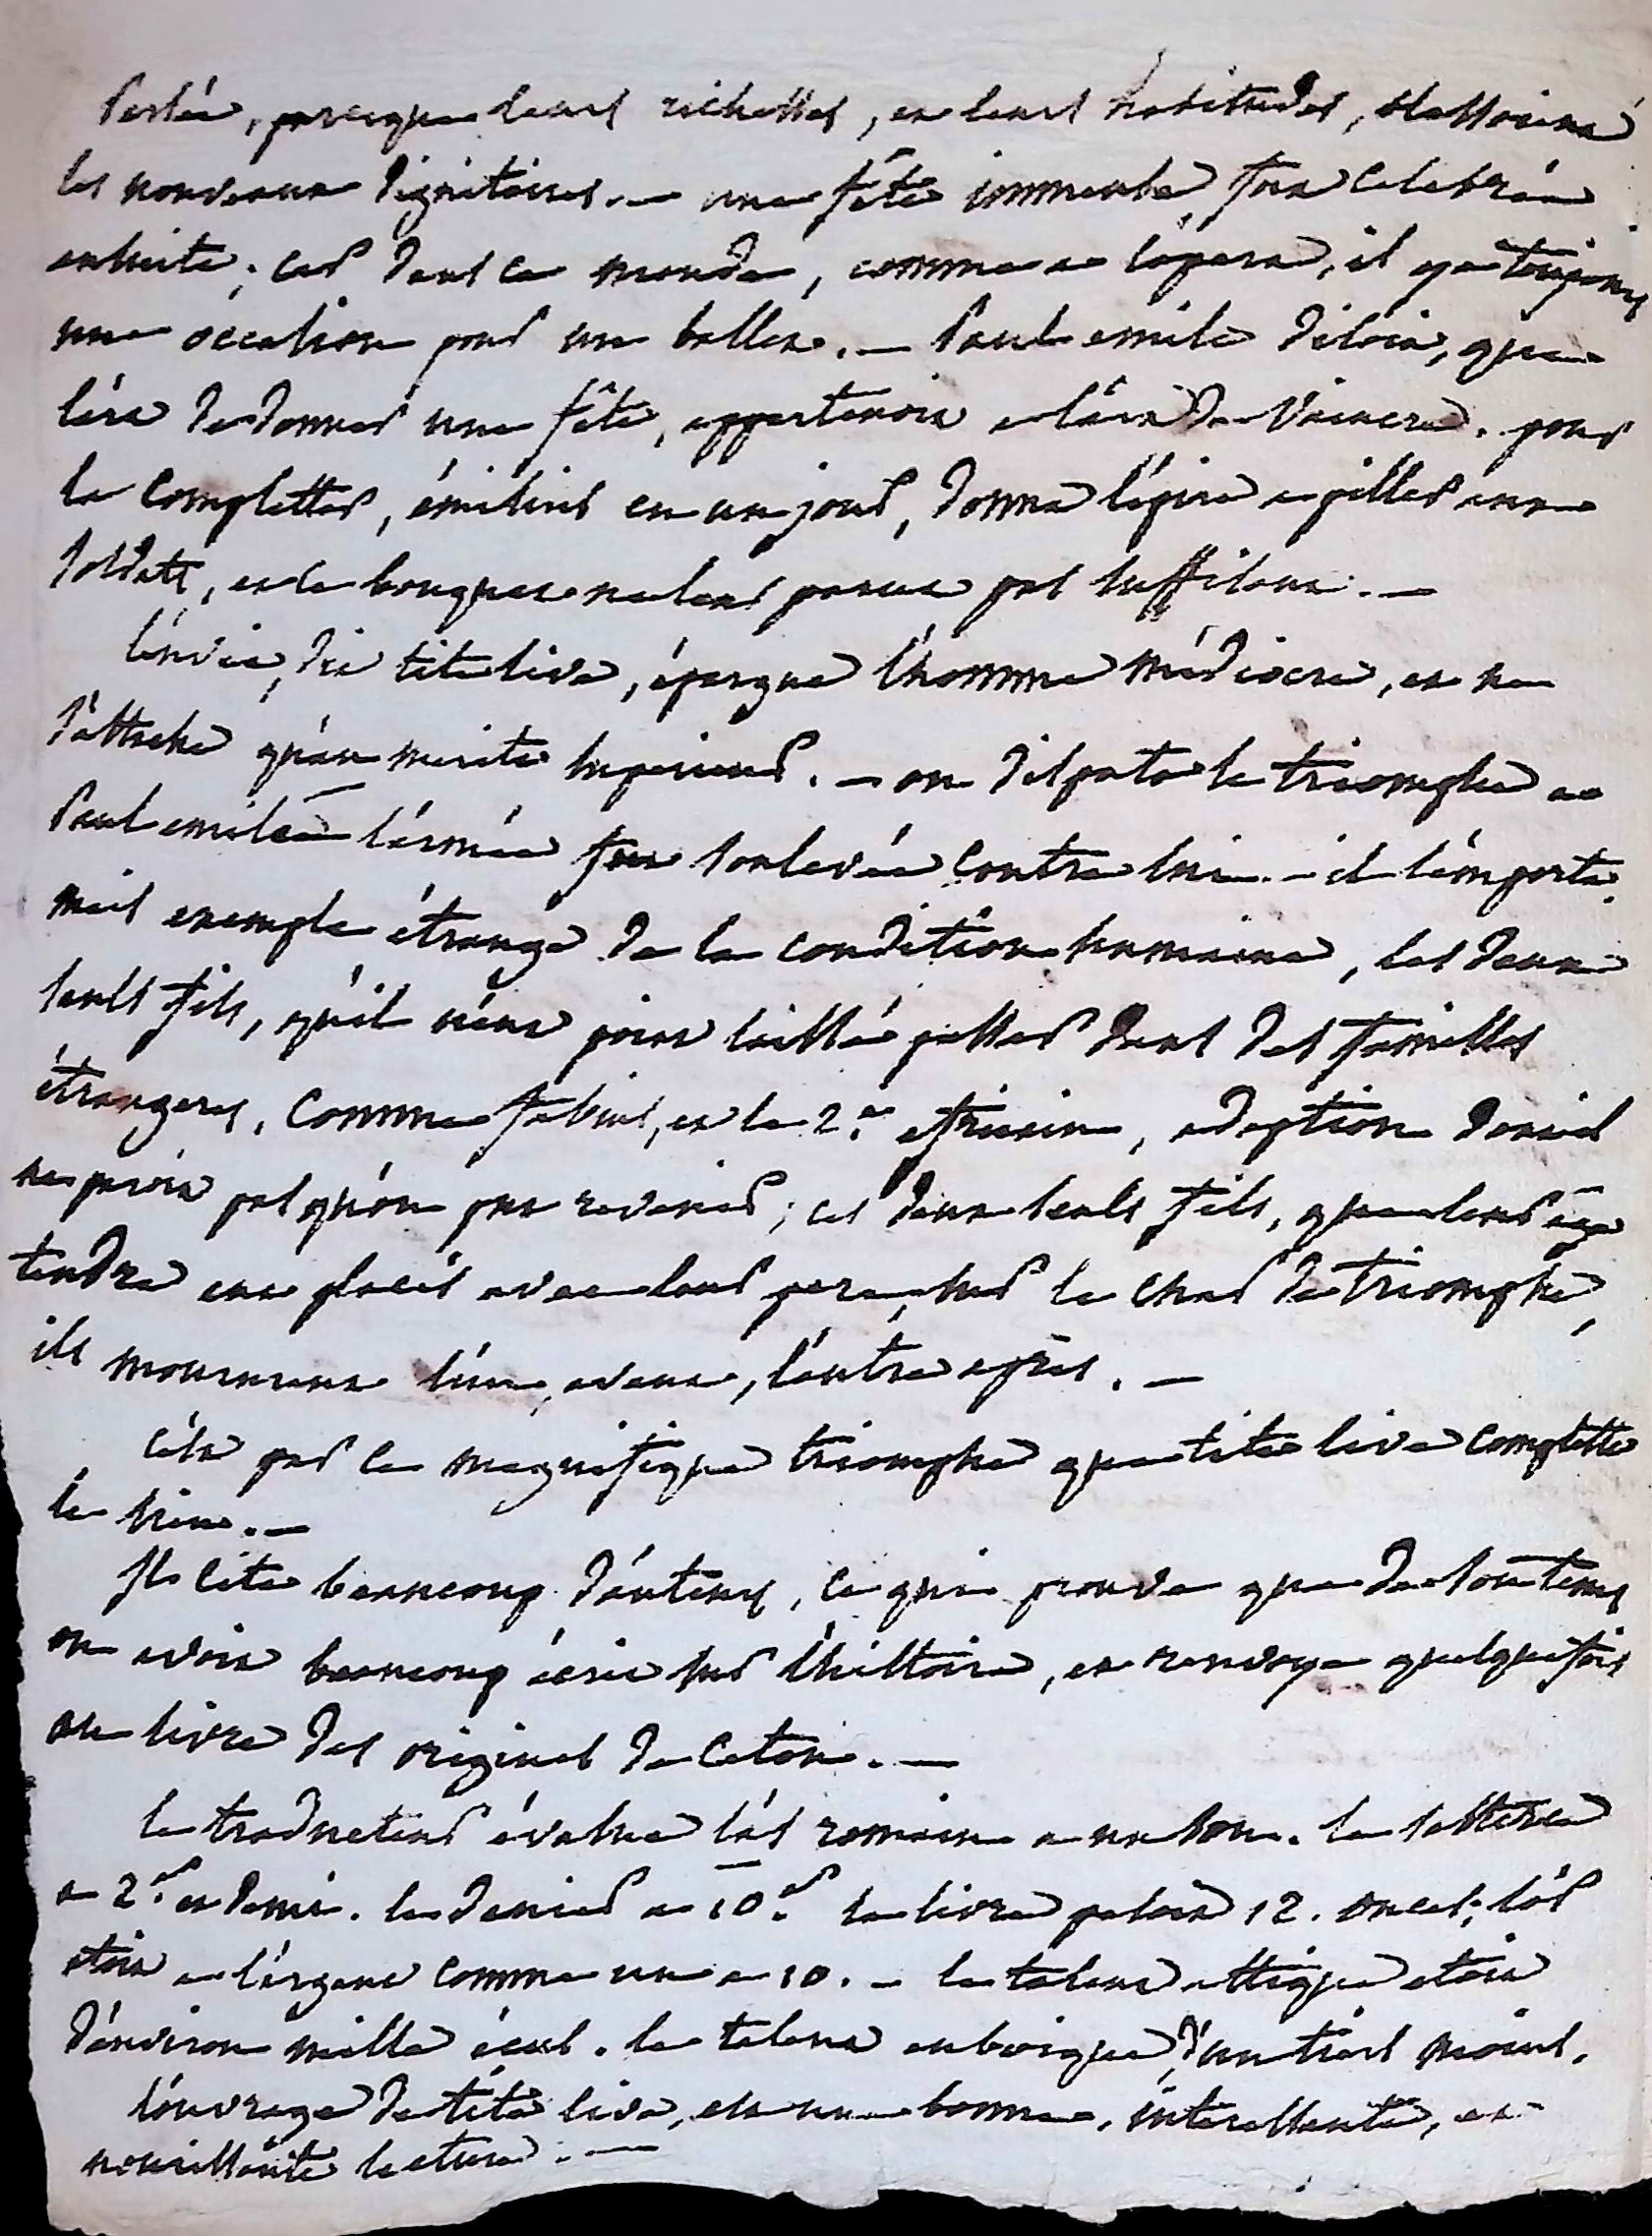 Persée, parceque leurs richesses, et leurs habitudes,
les nouveaux dignitaires. — une fête immense fut celebrée
ensuite; car dans ce monde, comme a l'opera, il y a toujours
une occasion pour un ballet. — Paul emile disoit, que
l'art de donner une fête, appartenoit a l'art de vaincre. pour
la completter, émilius en un jour, donna l'épire a piller aux
soldats, et le bouquet ne leur parut pas suffisant. —
l'envie, dit tite live, épargne l'homme médiocre, et ne
s'attache qu'au merite superieur. — on disputa le triomphe a
Paul emile — l'armée fut soulevée contre lui — il l'emporta.
mais exemple étrange de la condition humaine, les deux
seuls fils, qu'il n'eut point laissé passer dans des familles
étrangeres, comme fabius, et le 2.e africain, adoption dont il
ne paroit pas qu'on put revenir; ces deux seuls fils, que leur age
tendre eut placés avec leur pere, sur le char de triomphe,
ils moururent l'un, avant, l'autre après. —
c'est par ce magnifique triomphe que tite live complette
le sien. —
Il cite beaucoup d'auteurs, ce qui prouve que de tout tems
on avoit beaucoup écrit sur l'histoire, et renvoye quelquefois
au livre des origines de Caton. —
le traducteur évalue l'as romain a un sou. le sesterce
a 2.s et demi. le denier a 10.s la livre pesoit 12. onces; l'or
etoit a l'argent comme un a 10. — le talent attique etoit
d'environ mille écus. le talent euboique, d'un tiers moins.
l'ouvrage de tite live, est une bonne, interessante, et
nourrissante lecture. —